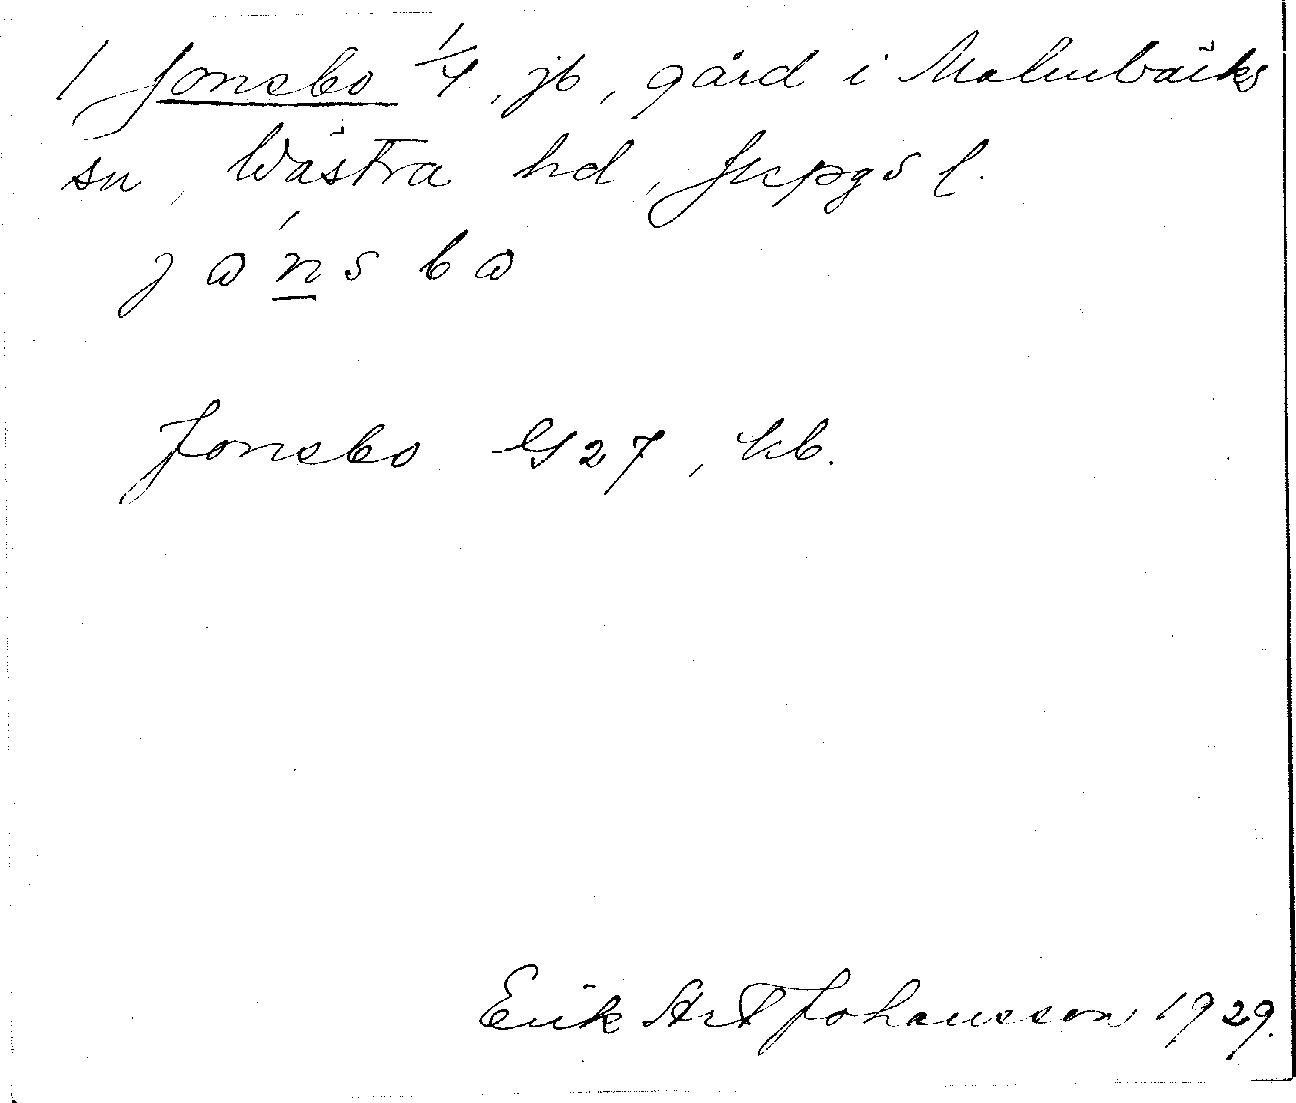 1 Jonsbo 1/4, jb, gård i Malmbäcks
sn, Västra hd, Jkpgs l.
jọ́n̲sbo
Jonsbo G27, kb.
Erik Art Johansson 1929.